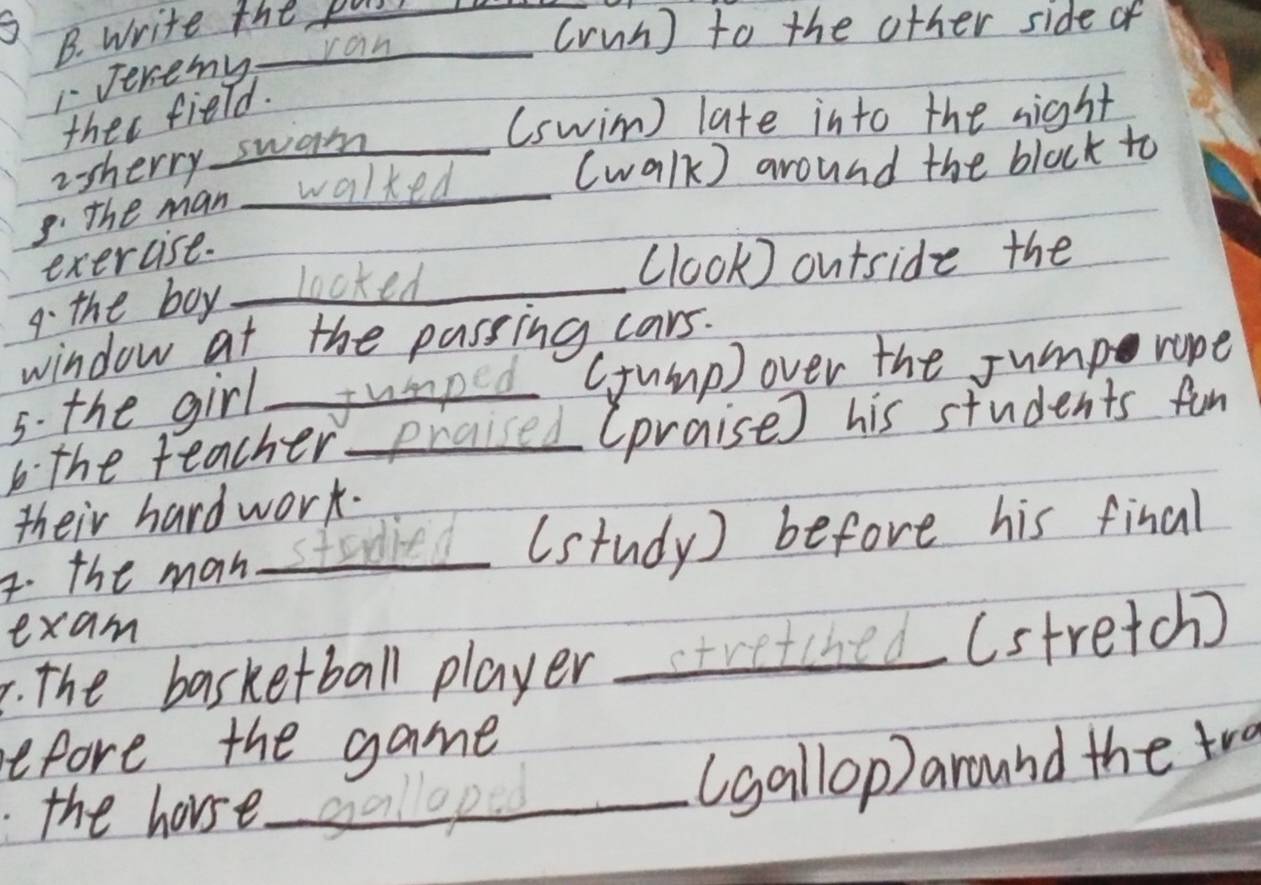 B. Write the
1- Jeremy ran (run) to the other side of
thec field.
2-sherry swam (swim) late into the night
3. The man walked (walk) around the block to
exercise.
4. the boy looked (look) outside the
window at the passing cars.
5. the girl jumped (jump) over the jump rope
6. the teacher praised (praise) his students fun
their hard work.
7. the man studied (study) before his final
exam
. The basketball player stretched (stretch)
efore the game
. the horse galloped (gallop) around the tra